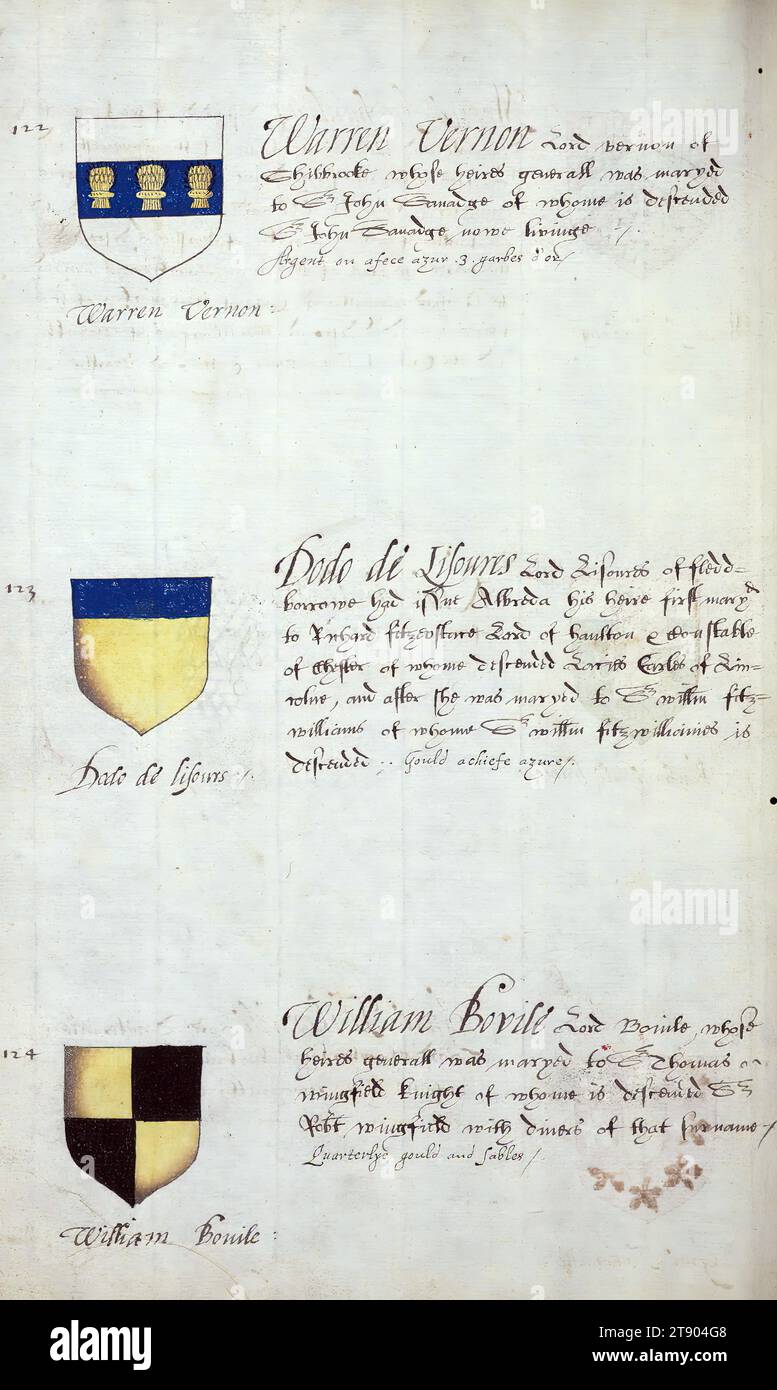 122
Warren Vernon Lord vernon of
Shibbrooke whose heires generall was maryed
to Sr John Savadge of whome is descended
Sr John Savadge nowe livinge
Argent on a fece azur .3. garbes d'or
Warren Vernon:
123
Dodo de Lisoures Lord Lisoures of fledd=
borrowe had issue Albreda his heire first maryd
to Richard fitzeustace Lord of haulton & Constable
of Chester of whome descended Lacies Earles of Lin=
colne, and after she was maryed to Sr willm fitz=
williams of whome Sr willm fitzwilliames is
descended .. Gould a chiefe azure
Dodo de lisours
124
William Bovile Lord Bouile, whose
heires generall was maryed to Sr Thomas
wingfield knight of whome is descended Sr
Robt wingfield with diuers of that surname
Quarterlye gould and sables
William Bouile:
alamy
alamy
a
a
a
a
alamy
Image ID: 2T904G8
www.alamy.com